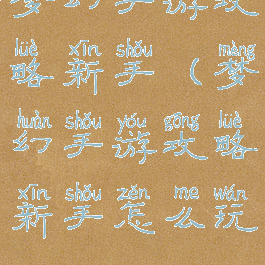 梦幻手游攻
lüè xīn shǒu mèng
略新手（梦
huàn shǒu yóu gōng lüè
幻手游攻略
xīn shǒu zěn me wán
新手怎么玩